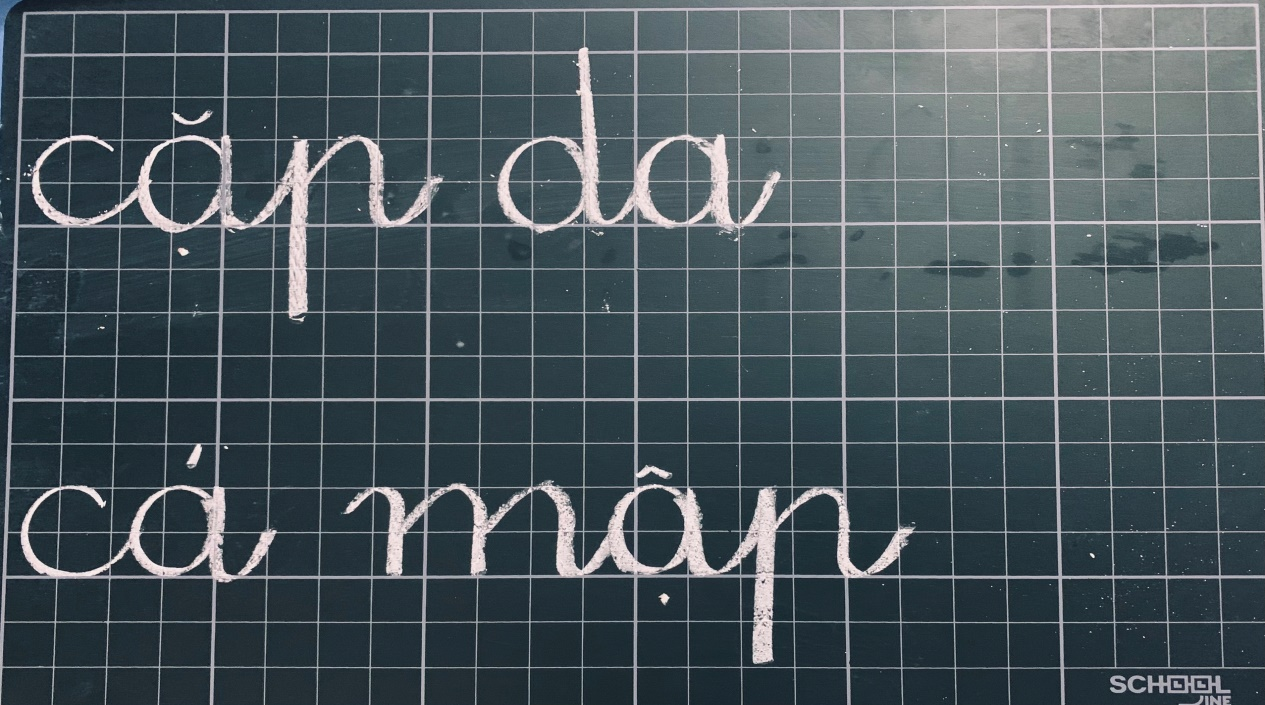 cặp da
cá mập
SCHOOL